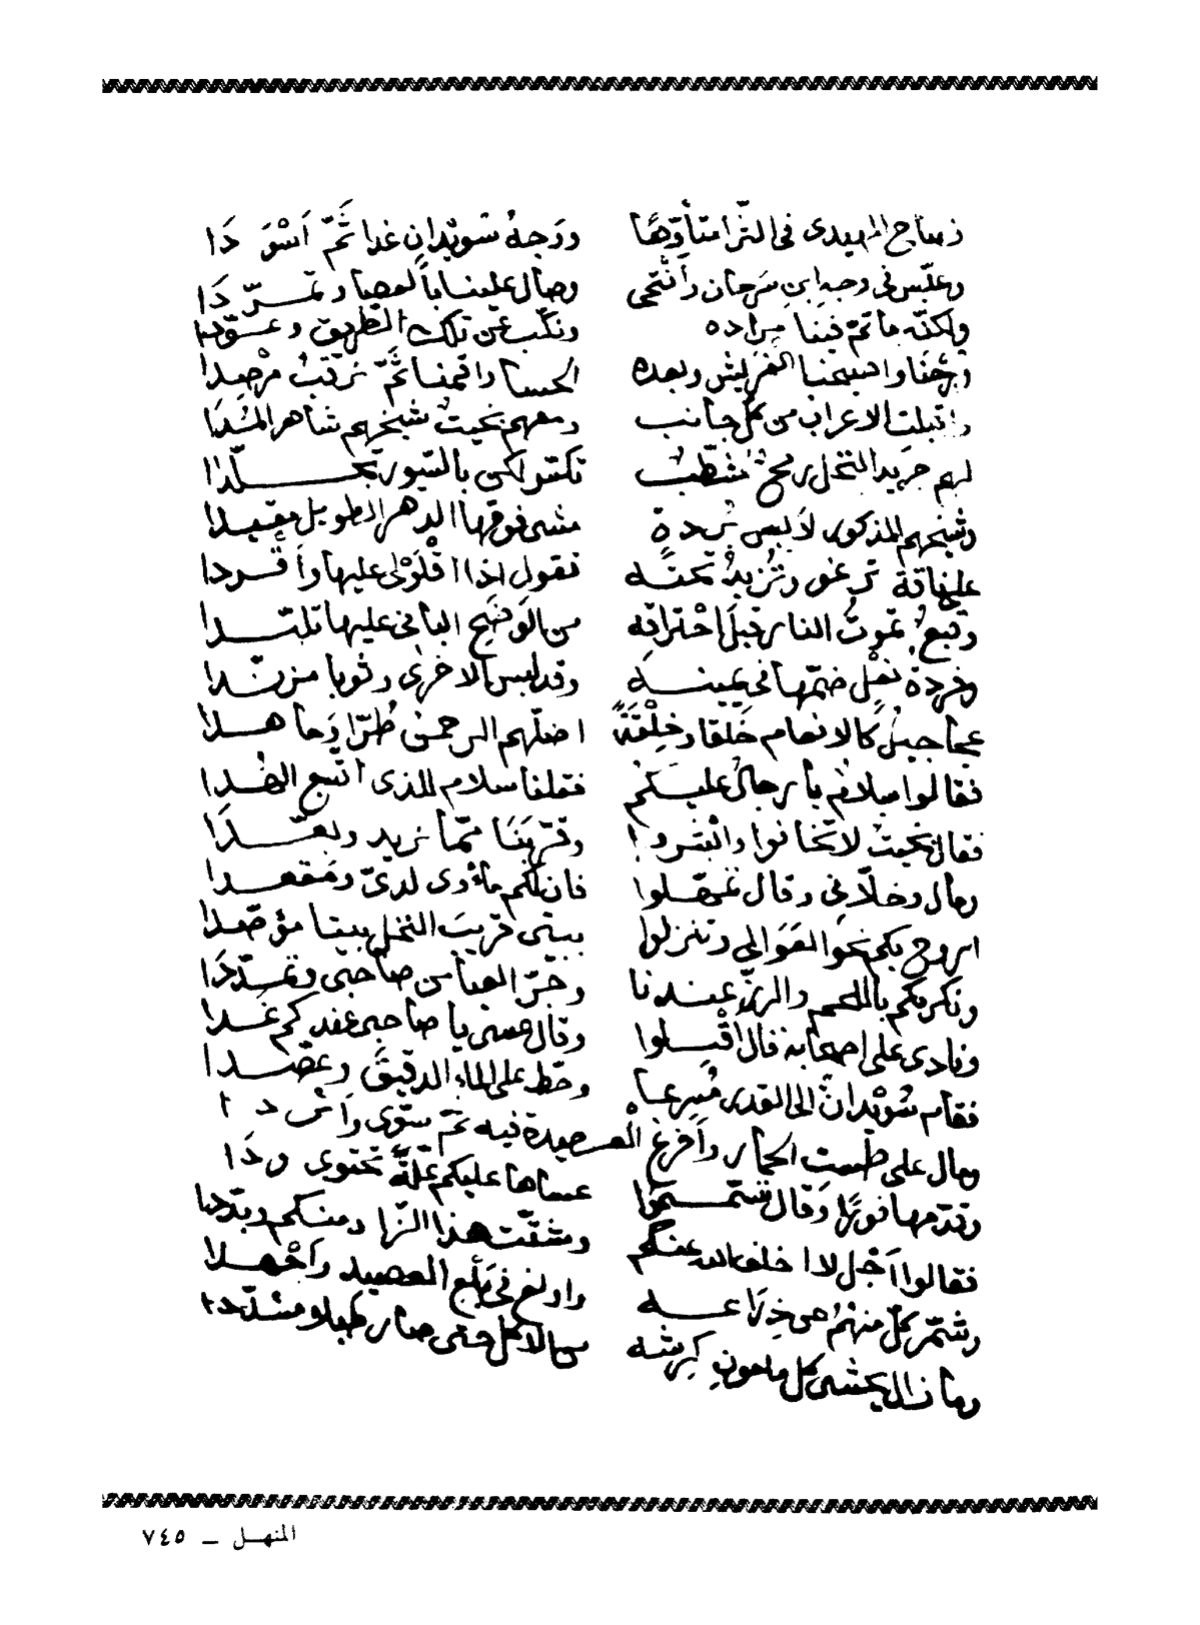 وصاح المهيدى فى الترا متأوّها ووجهُ سويدانٍ غدا ثَمّ اَسْوَدَا
وعبّس فى وجهِ ابنِ سَرحان وأنتحى وصال علينا بالعصا وتمرّدَا
ولكنّه ما تمّ فينا مراده ونكّب عن تلك الطريق وعوّدا
ورُحْنا واصبحنا الفريش وبعده الحسا واقمنا ثَمَّ نرقبُ مرْصدا
واقبلت الاعراب من كل جانب ومعهم بخيتٌ شيخهم شاهر
لهم جريد النخل رمحٌ مشطّبٌ بالسّيور تجلّدا
وشيخهم المذكور لابس بُردةٍ مشى فوقها الدهر الطويل مقيدا
على ناقة ترغو وتُزبدُ تحته تقول اذا اقْلَوْلى عليها وأقردا
تموتُ النار قبلَ احْتراقه من الوَضَحِ الباقى عليها تلبّدا
وفردة نعْلٍ ضمّها فى يمينه وقد لبس الاخرى وثوبا مزنّدا
كالانعام خَلقا وخِلْقَةً اضلّهم الرحمنُ طُرّا وَما هدا
فقالوا سلامٌ يا رجالُ عليكم فقلنا سلام للذى اتّبع الهُدا
فقال بخيتٌ لا تخافوا وابْشروا وقرّبَنَا ممّا نريد وبعّدَا
ومال وخلاّنى وقال تمهّلوا فان لكم مأوى لدىّ ومَقعدا
اروح بكم نحوَ العَوَالى وتنزلوا ببيتى قريبَ النخل بيتا مؤصّدا
ونكرمكم باللحم والرزّ عندنا وجرّ العبا من صاحبى وتمدّدَا
ونادى على اصحابه قال اقْبِلوا وقال عسى يا صاحبى عندكم غَدا
فقام سُويْدانٌ الى القدر مُسرعا وحطّ على الماء الدقيقَ وعصّدا
ومال على طست الحمار وأفرغ الْعصيدة فيه ثمّ سوّى وأثردا
وقدّمها فورًا وقال عساها عليكم
فقالوا اَجَل لا اخلف الله عنكم وشتّت هذا الزاد منكم وبدّدا
وشمّر كلٌّ منهُمُ عن ذِرَاعه واولغ فى بلْع العصيد وأجْهدا
وما زال يحشى كل ملعونِ كِرشه من الاكل حتى صار طبلا مشدّدا
المنهـل ـ ٧٤٥